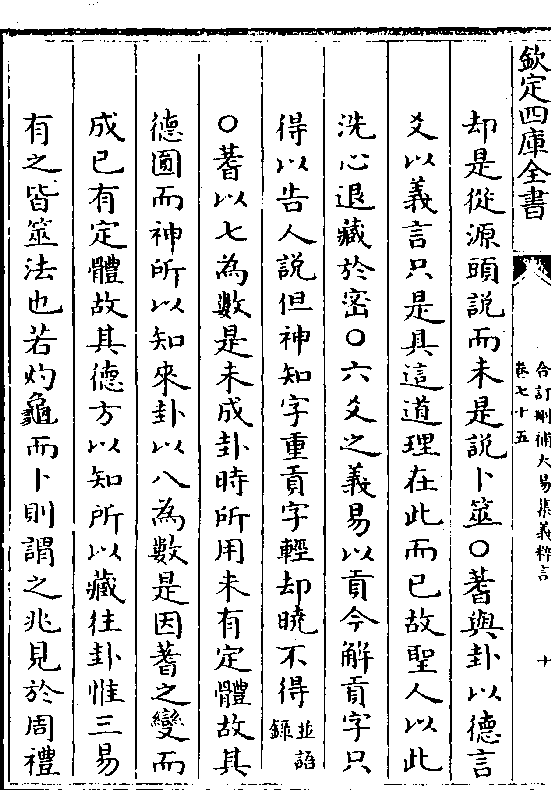 欽定四庫全書
合訂刪補大易集義粹言
卷七十五
十
却是從源頭説而未是説卜筮〇蓍與卦以德言
爻以義言只是具這道理在此而已故聖人以此
洗心退藏於密〇六爻之義易以貢今解貢字只
得以告人説但神知字重貢字輕却曉不得並語録
〇蓍以七為數是未成卦時所用未有定體故其
德圓而神所以知來卦以八為數是因蓍之變而
成已有定體故其德方以知所以藏往卦惟三易
有之皆筮法也若灼龜而卜則謂之兆見於周禮